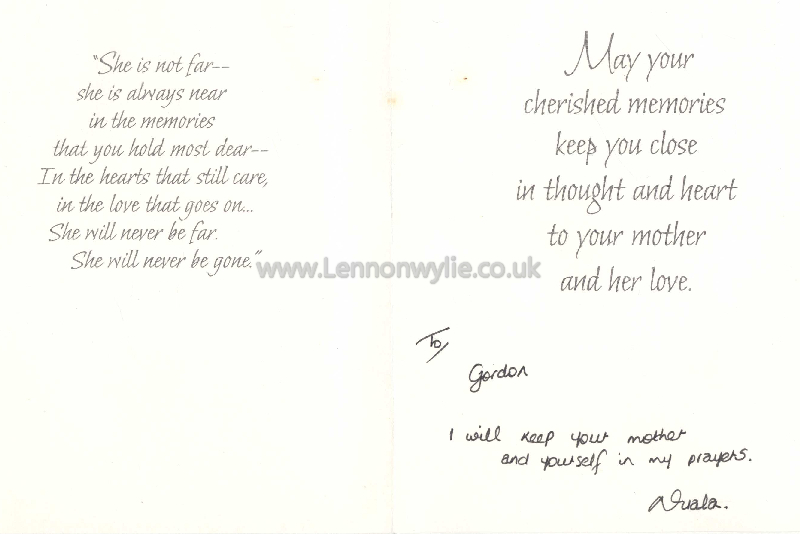 "She is not far--
she is always near
in the memories
that you hold most dear--
In the hearts that still care,
in the love that goes on...
She will never be far.
She will never be gone."
May your
cherished memories
keep you close
in thought and heart
to your mother
and her love.
www.Lennonwylie.co.uk
To
Gordon
I will keep your mother
and yourself in my prayers.
Nuala.